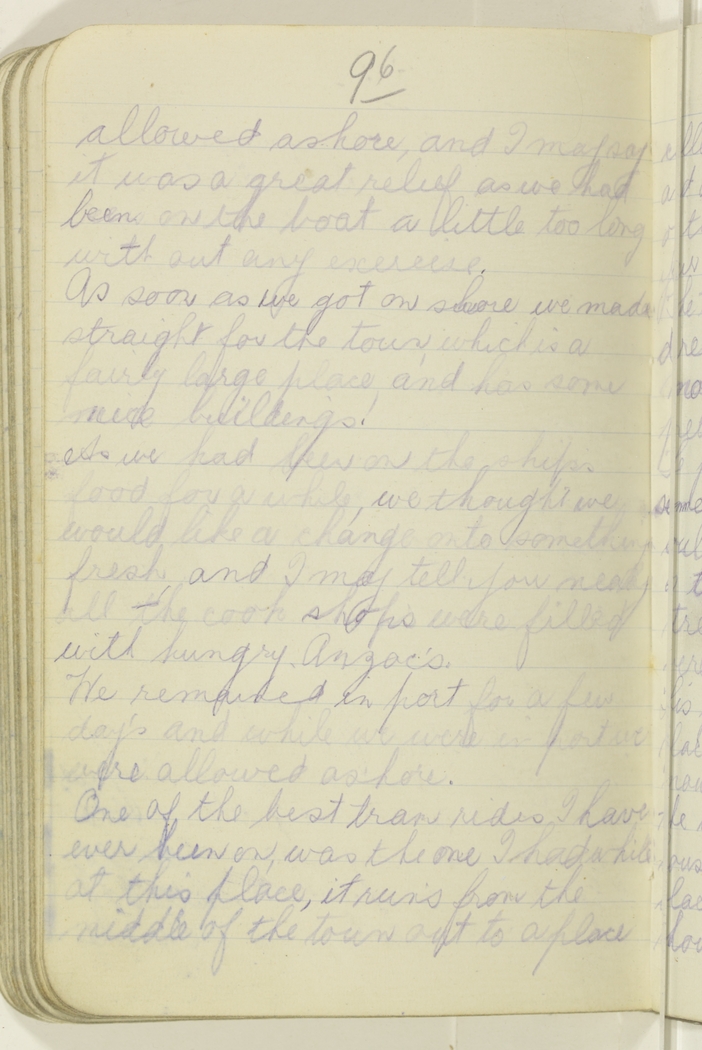 96
allowed ashore, and I may say
it was a great relief as we had
been on the boat a little too long
without any exercise.
As soon as we got on shore we made
straight for the town, which is a
fairly large place, and has some
nice buildings!
As we had been on the ships
food for a while, we thought we
would like a change onto something
fresh, and I may tell you nearly
all the cook shops were filled
with hungry Anzac's.
We remained in port for a few
day's and while we were in port we
were allowed ashore.
One of the best tram rides I have
ever been on, was the one I had while
at this place, it run's from the
middle of the town out to a place